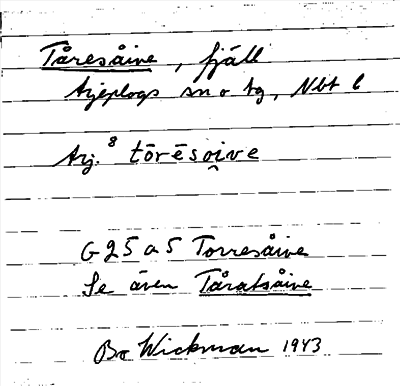 Tåresåive, fjäll
Arjeplogs sn o tg, Nbt l
Arj. ⁸ tōrēsoi̯ve
G 25 a 5 Torresåive
Se även Tåratsåive
Bo Wickman 1943